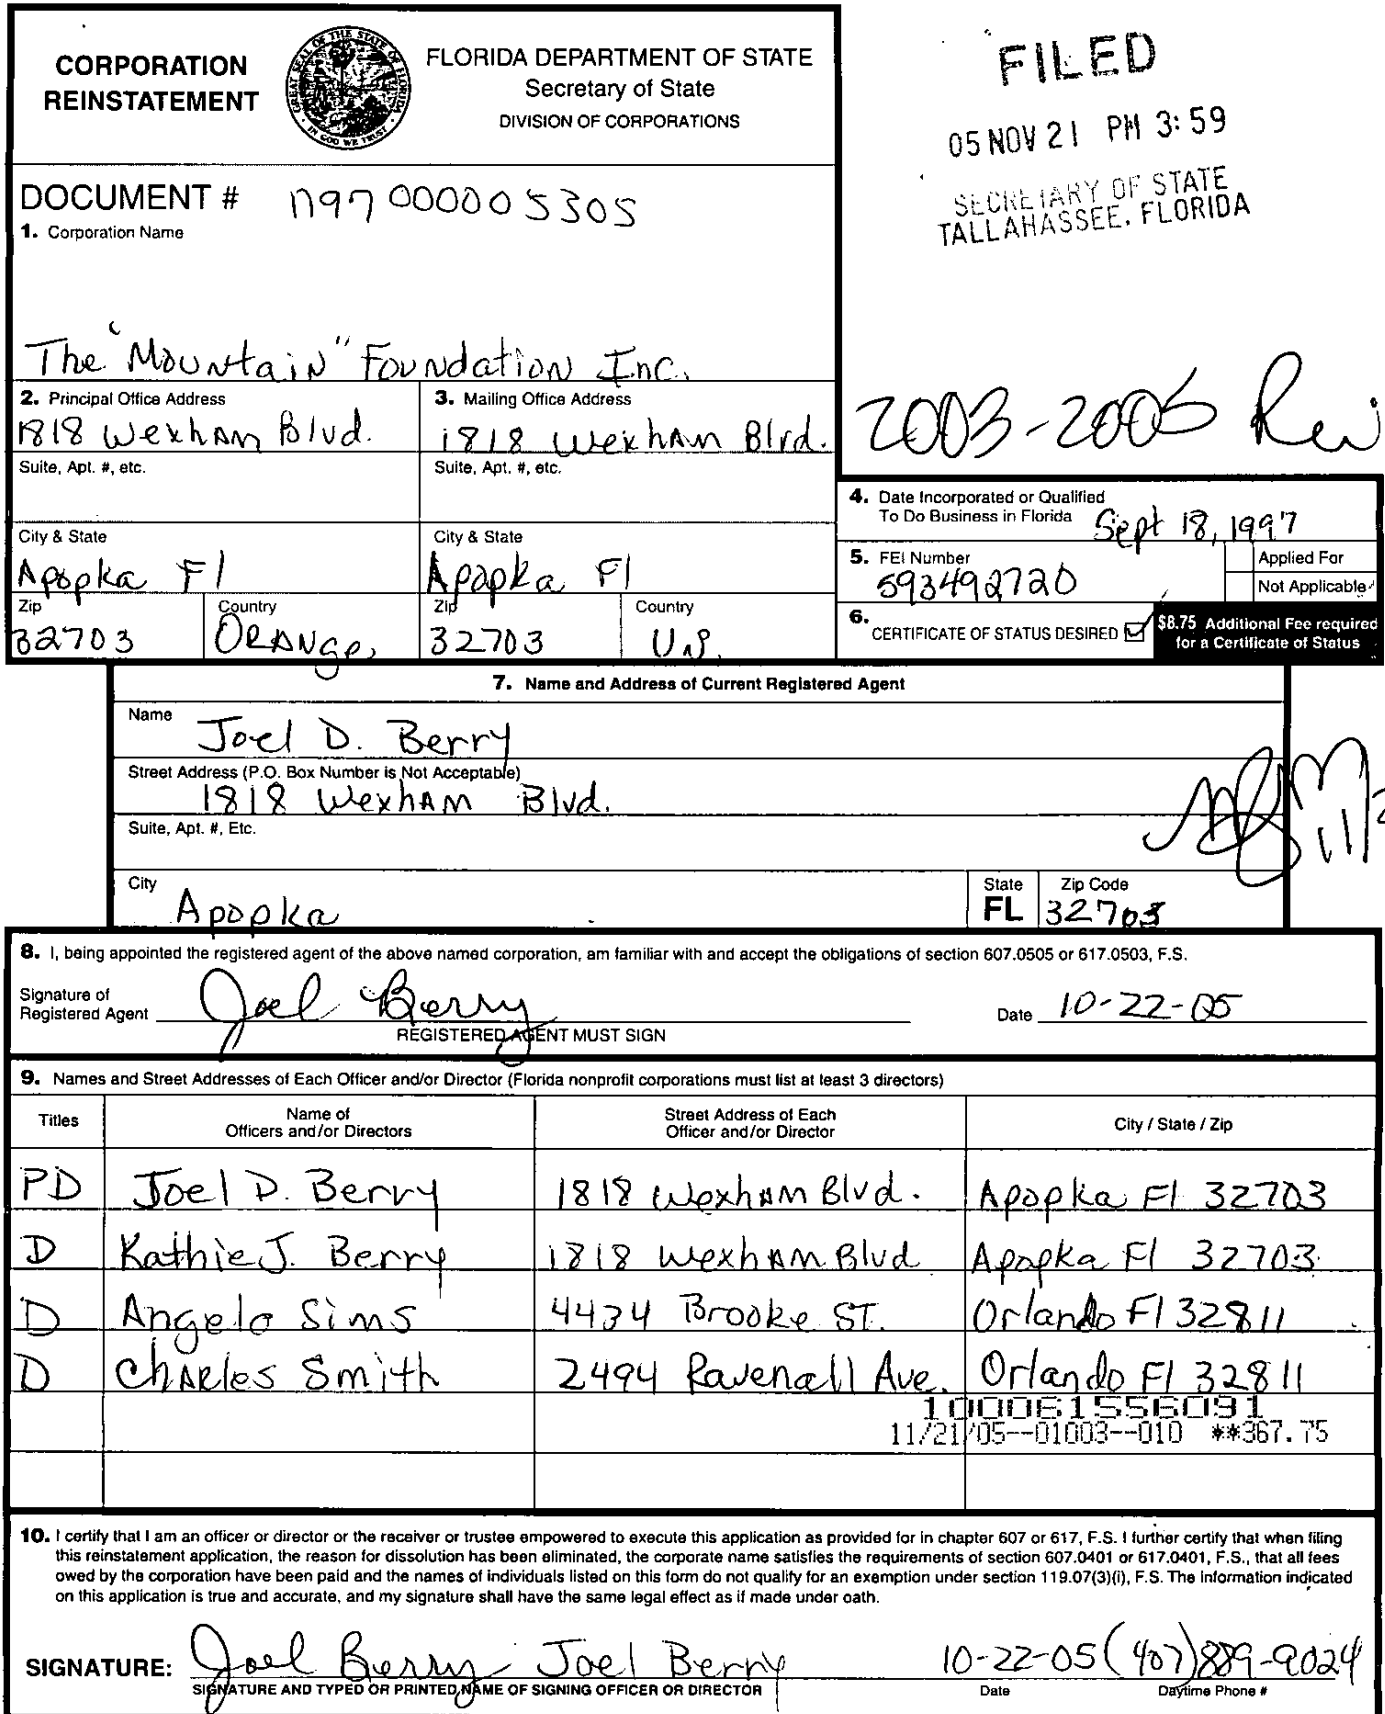 CORPORATION
REINSTATEMENT
GREAT SEAL OF THE STATE OF FLORIDA
IN GOD WE TRUST
FLORIDA DEPARTMENT OF STATE
Secretary of State
DIVISION OF CORPORATIONS
FILED
05 NOV 21 PM 3:59
SECRETARY OF STATE
TALLAHASSEE, FLORIDA
DOCUMENT # N97000005305
1. Corporation Name
The "Mountain" Foundation Inc.
2003-2005 Rei
2. Principal Office Address
1818 Wexham Blvd.
3. Mailing Office Address
1818 Wexham Blvd.
Suite, Apt. #, etc.
Suite, Apt. #, etc.
City & State
Apopka Fl
City & State
Apopka Fl
Zip
32703
Country
Orange
Zip
32703
Country
U.S.
4. Date Incorporated or Qualified
To Do Business in Florida Sept 18, 1997
5. FEI Number
593492720
Applied For
Not Applicable
6. CERTIFICATE OF STATUS DESIRED
$8.75 Additional Fee required
for a Certificate of Status
7. Name and Address of Current Registered Agent
Name
Joel D. Berry
Street Address (P.O. Box Number is Not Acceptable)
1818 Wexham Blvd.
Suite, Apt. #, Etc.
City
Apopka
State
FL
Zip Code
32703
8. I, being appointed the registered agent of the above named corporation, am familiar with and accept the obligations of section 607.0505 or 617.0503, F.S.
Signature of
Registered Agent Joel Berry
Date 10-22-05
REGISTERED AGENT MUST SIGN
9. Names and Street Addresses of Each Officer and/or Director (Florida nonprofit corporations must list at least 3 directors)
Titles
Name of
Officers and/or Directors
Street Address of Each
Officer and/or Director
City / State / Zip
PD Joel D. Berry 1818 Wexham Blvd. Apopka Fl 32703
D Kathie J. Berry 1818 Wexham Blvd Apopka Fl 32703
D Angelo Sims 4434 Brooke ST. Orlando Fl 32811
D Charles Smith 2494 Ravenall Ave. Orlando Fl 32811
100061556091
11/21/05--01003--010 **367.75
10. I certify that I am an officer or director or the receiver or trustee empowered to execute this application as provided for in chapter 607 or 617, F.S. I further certify that when filing
this reinstatement application, the reason for dissolution has been eliminated, the corporate name satisfies the requirements of section 607.0401 or 617.0401, F.S., that all fees
owed by the corporation have been paid and the names of individuals listed on this form do not qualify for an exemption under section 119.07(3)(i), F.S. The information indicated
on this application is true and accurate, and my signature shall have the same legal effect as if made under oath.
SIGNATURE: Joel Berry Joel Berry 10-22-05 (407)889-9024
SIGNATURE AND TYPED OR PRINTED NAME OF SIGNING OFFICER OR DIRECTOR
Date
Daytime Phone #